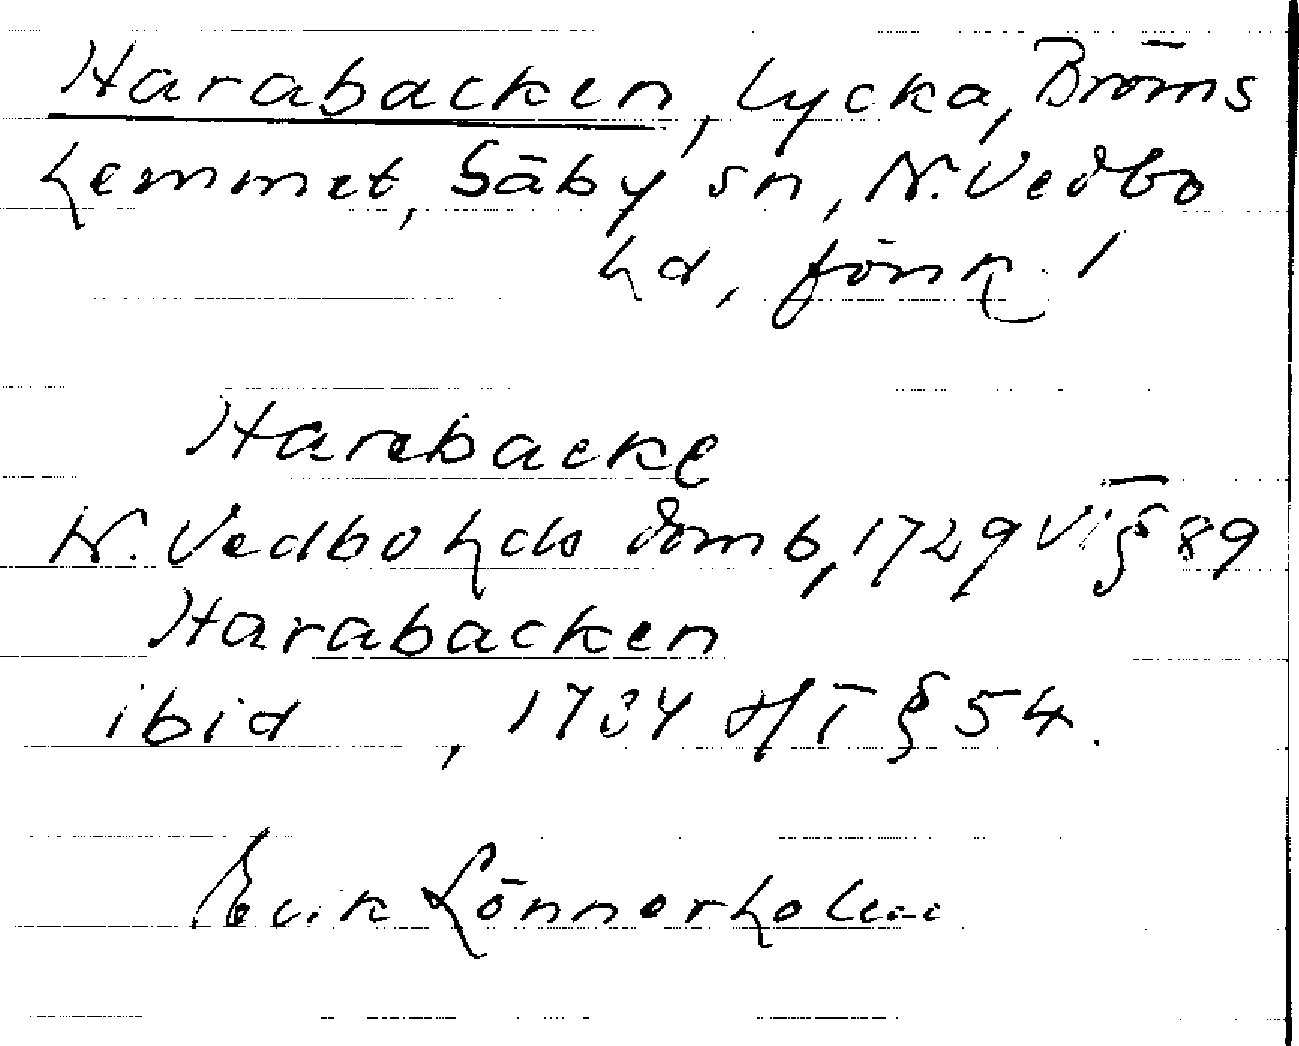 Harabacken, lycka, Bröms
hemmet, Säby sn, N. Vedbo
hd, Jönk. l
Harebacke
N. Vedbo hds domb, 1729 VT § 89
Harabacken
ibid, 1734 HT § 54.
Erik Lönnerholm